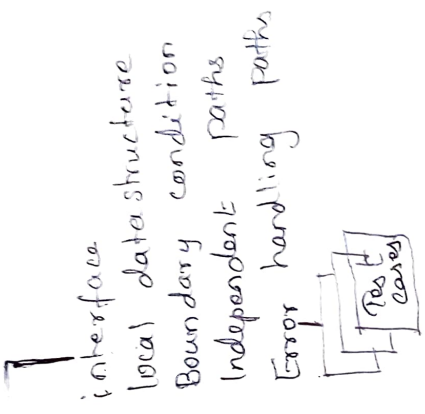 interface
local datastructure
Boundary condition
Independent paths
Error handling paths
Test
cases